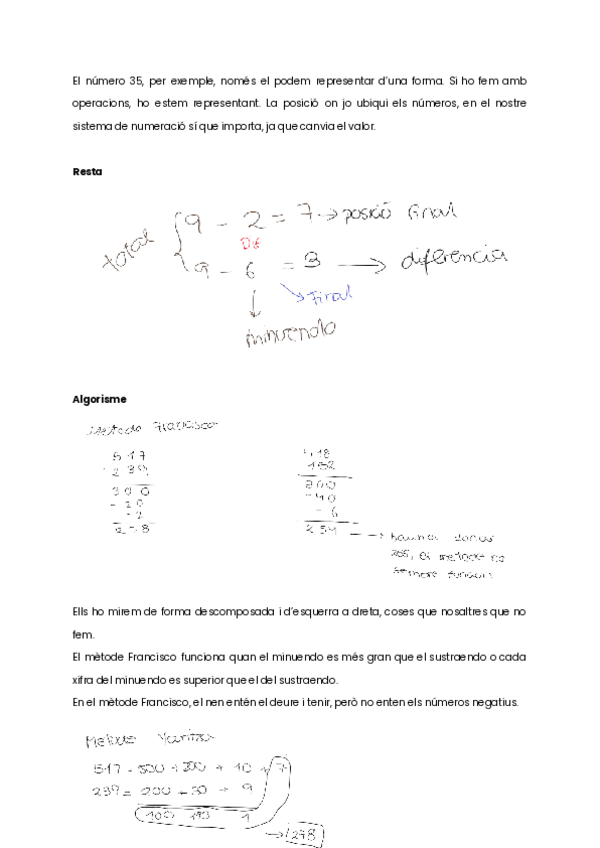 El número 35, per exemple, només el podem representar d'una forma. Si ho fem amb
operacions, ho estem representant. La posició on jo ubiqui els números, en el nostre
sistema de numeració sí que importa, ja que canvia el valor.
Resta
total
9 - 2 = 7 → posició final
Dif
9 - 6 = 3 → diferencia
Final
minuendo
Algorisme
Metodo Francisco
517
300
- 2
200
- 40
- 6
Ells ho mirem de forma descomposada i d'esquerra a dreta, coses que nosaltres que no
fem.
El mètode Francisco funciona quan el minuendo es més gran que el sustraendo o cada
xifra del minuendo es superior que el del sustraendo.
En el mètode Francisco, el nen entén el deure i tenir, però no enten els números negatius.
517
+ 10 + 7
239 = 200 + 30 + 9
100 190
→ 278